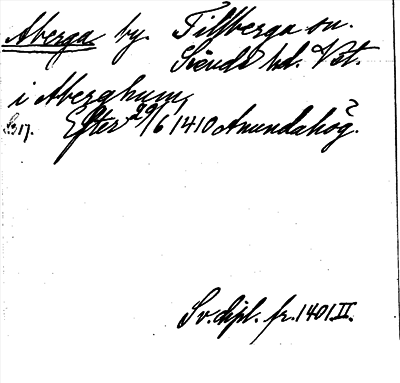 Aberga by. Tillberga sn.
Siende hd. Vstl.
i Aberghum,
S. 17. Efter 29/6 1410 Anundahög?.
Sv. dipl. fr. 1401. II.